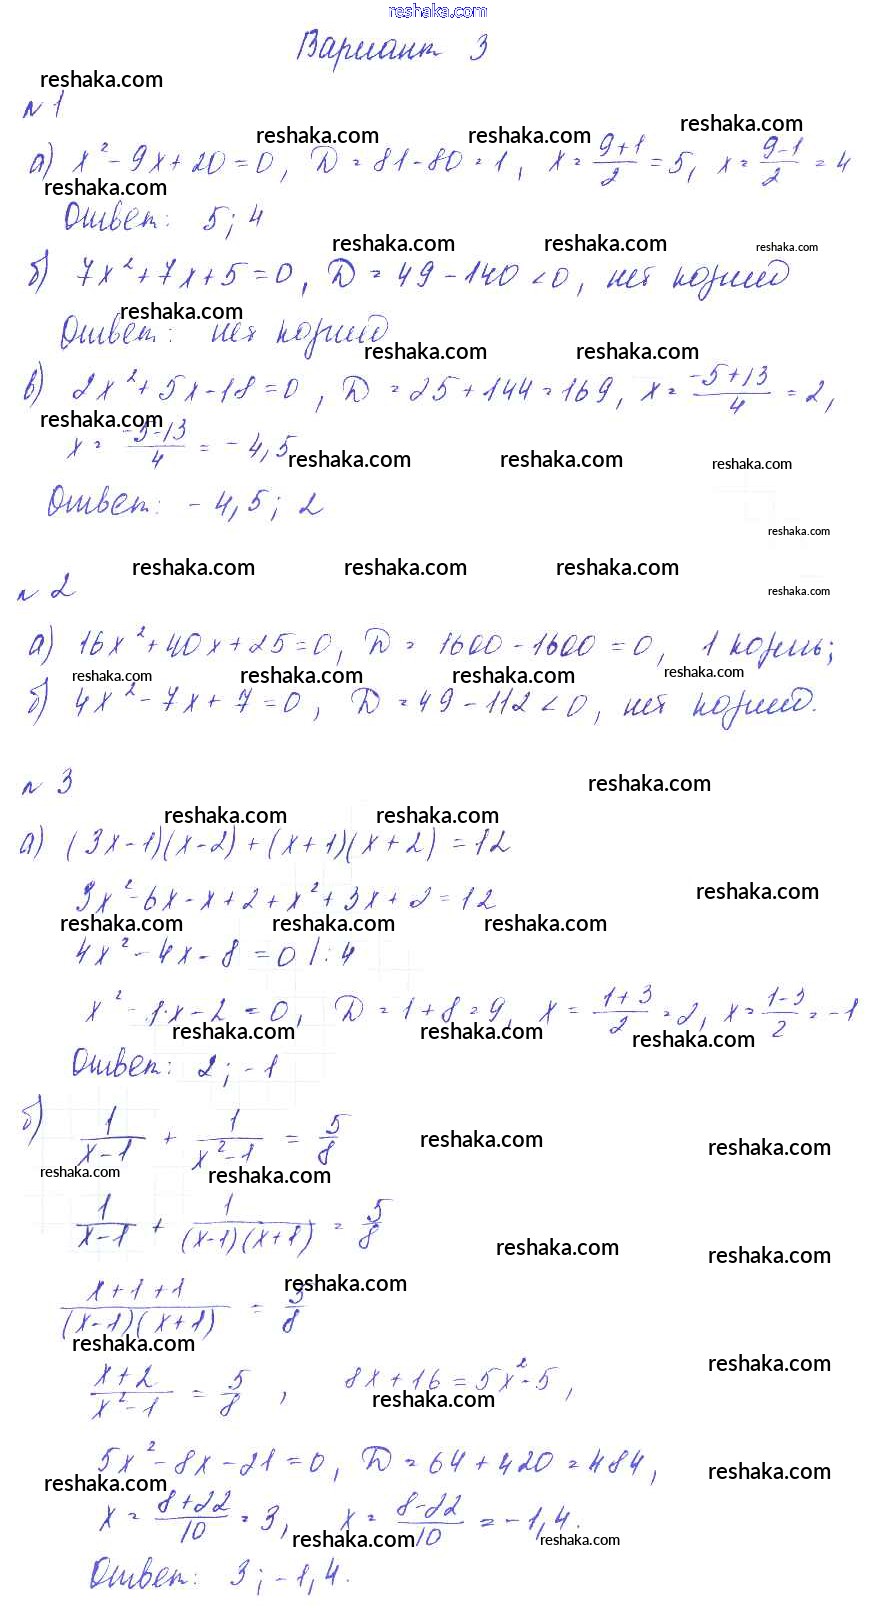 reshaka.com
Вариант 3
reshaka.com
№1
reshaka.com reshaka.com reshaka.com
а) x² - 9x + 20 = 0, D = 81 - 80 = 1, x = (9+1)/2 = 5, x = (9-1)/2 = 4
reshaka.com
Ответ: 5; 4
reshaka.com reshaka.com reshaka.com
б) 7x² + 7x + 5 = 0, D = 49 - 140 < 0, нет корней
reshaka.com
Ответ: нет корней
reshaka.com reshaka.com
в) 2x² + 5x - 18 = 0, D = 25 + 144 = 169, x = (-5+13)/4 = 2,
reshaka.com
x = (-5-13)/4 = -4,5
reshaka.com reshaka.com reshaka.com
Ответ: -4,5; 2
reshaka.com
reshaka.com reshaka.com reshaka.com
№2
reshaka.com
а) 16x² + 40x + 25 = 0, D = 1600 - 1600 = 0, 1 корень;
reshaka.com reshaka.com reshaka.com reshaka.com
б) 4x² - 7x + 7 = 0, D = 49 - 112 < 0, нет корней.
№3
reshaka.com
reshaka.com reshaka.com
а) (3x-1)(x-2) + (x+1)(x+2) = 12
reshaka.com
3x² - 6x - x + 2 + x² + 3x + 2 = 12
reshaka.com reshaka.com reshaka.com
4x² - 4x - 8 = 0 | : 4
x² - 1·x - 2 = 0, D = 1 + 8 = 9, x = (1+3)/2 = 2, x = (1-3)/2 = -1
reshaka.com reshaka.com reshaka.com
Ответ: 2; -1
б) 1/(x-1) + 1/(x²-1) = 5/8
reshaka.com reshaka.com
reshaka.com reshaka.com
1/(x-1) + 1/((x-1)(x+1)) = 5/8
reshaka.com reshaka.com
reshaka.com
(x+1+1)/((x-1)(x+1)) = 5/8
reshaka.com
reshaka.com
(x+2)/(x²-1) = 5/8, 8x + 16 = 5x² - 5,
reshaka.com
5x² - 8x - 21 = 0, D = 64 + 420 = 484,
reshaka.com reshaka.com
x = (8+22)/10 = 3, x = (8-22)/10 = -1,4.
reshaka.com reshaka.com
Ответ: 3; -1,4.